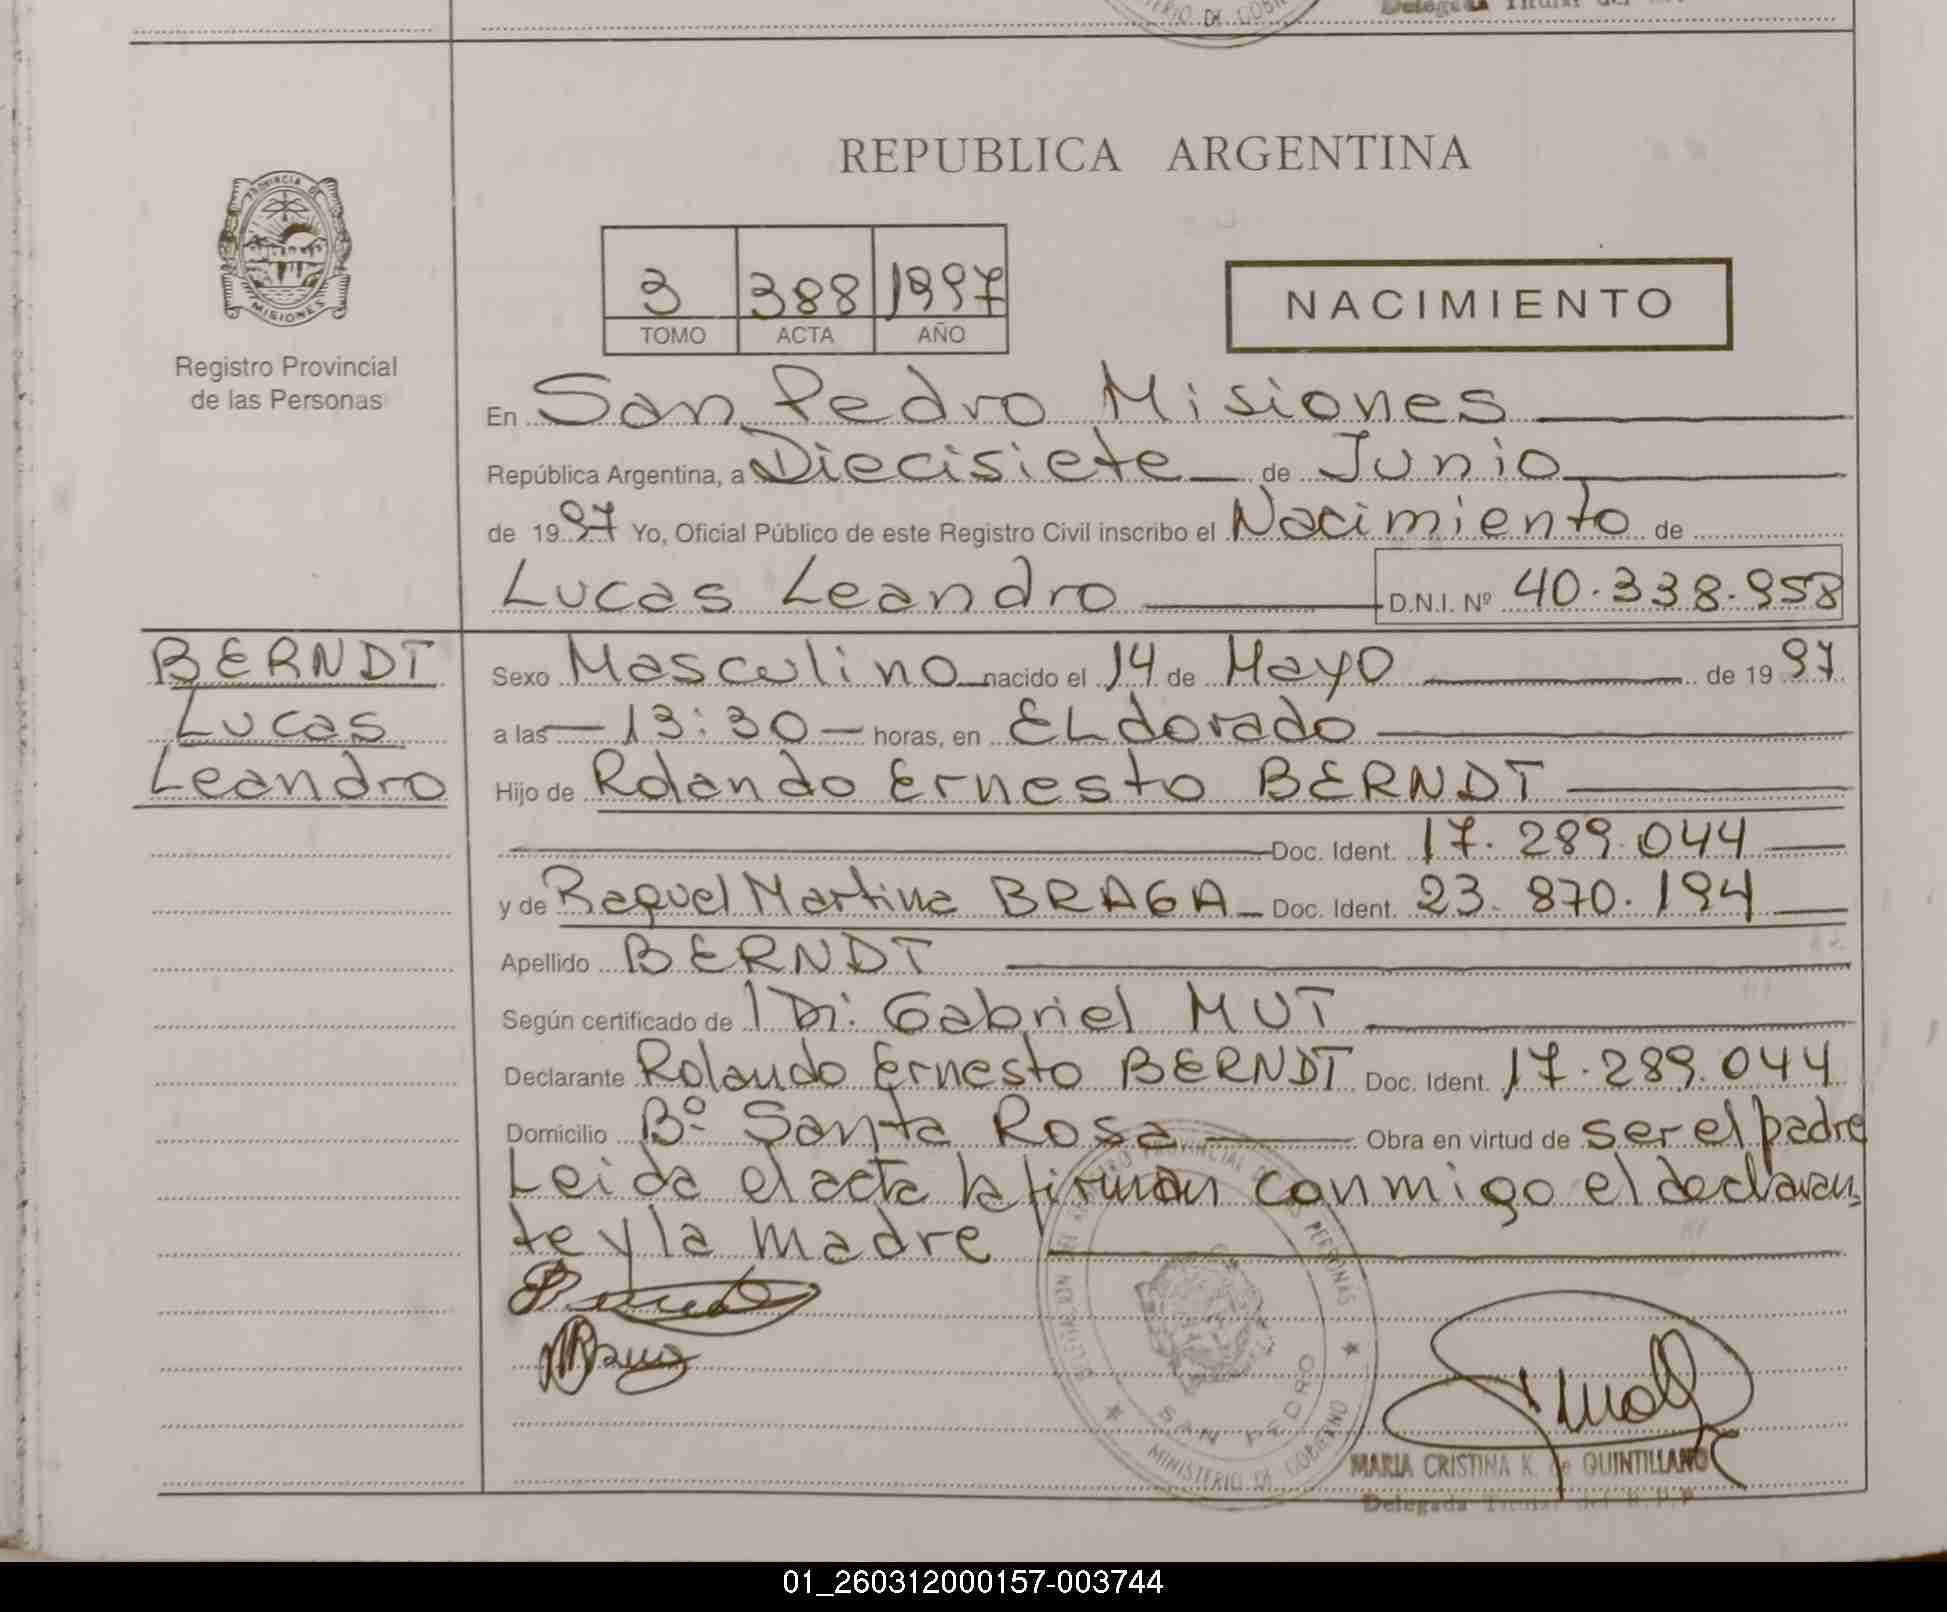 MINISTERIO DE GOBIERNO
Delegada Titular del
REPUBLICA ARGENTINA
PROVINCIA DE
MISIONES
Registro Provincial
de las Personas
3 388 1997
TOMO ACTA AÑO
NACIMIENTO
En San Pedro Misiones
República Argentina, a Diecisiete de Junio
de 1997 Yo, Oficial Público de este Registro Civil inscribo el Nacimiento de
Lucas Leandro D.N.I. Nº 40.338.958
BERNDT
Lucas
Leandro
Sexo Masculino nacido el 14 de Mayo de 1997
a las 13:30 horas, en ELdorado
Hijo de Rolando Ernesto BERNDT
Doc. Ident. 17.289.044
y de Raquel Martina BRAGA Doc. Ident. 23.870.194
Apellido BERNDT
Según certificado de Dr: Gabriel MUT
Declarante Rolando Ernesto BERNDT Doc. Ident. 17.289.044
Domicilio Bº Santa Rosa Obra en virtud de ser el padre
Leida el acta la firman conmigo el declaran
te y la madre
REGISTRO PROVINCIAL DE LAS PERSONAS
SAN PEDRO
MINISTERIO DE GOBIERNO
MARIA CRISTINA K. de QUINTILLANO
Delegada Titular del R.P.P
01_260312000157-003744